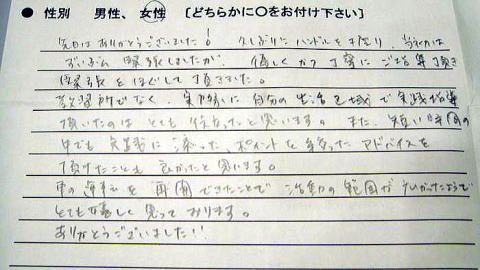 ● 性別 男性、女性 〔どちらかに○をお付け下さい〕
先日はありがとうございました! 久しぶりにハンドルを握り、当初は
ずいぶん緊張しましたが、優しくかつ丁寧にご指導頂き
緊張をほぐして頂きました。
教習所でなく、実際に自分の生活区域で実践指導
頂いたのはとても役立ったと思います。また、短い時間の
中でも実践に添った、ポイントを絞ったアドバイスを
頂けたことも良かったと思います。
車の運転を再開できたことで活動の範囲が広がったようで
とても嬉しく思っております。
ありがとうございました!!